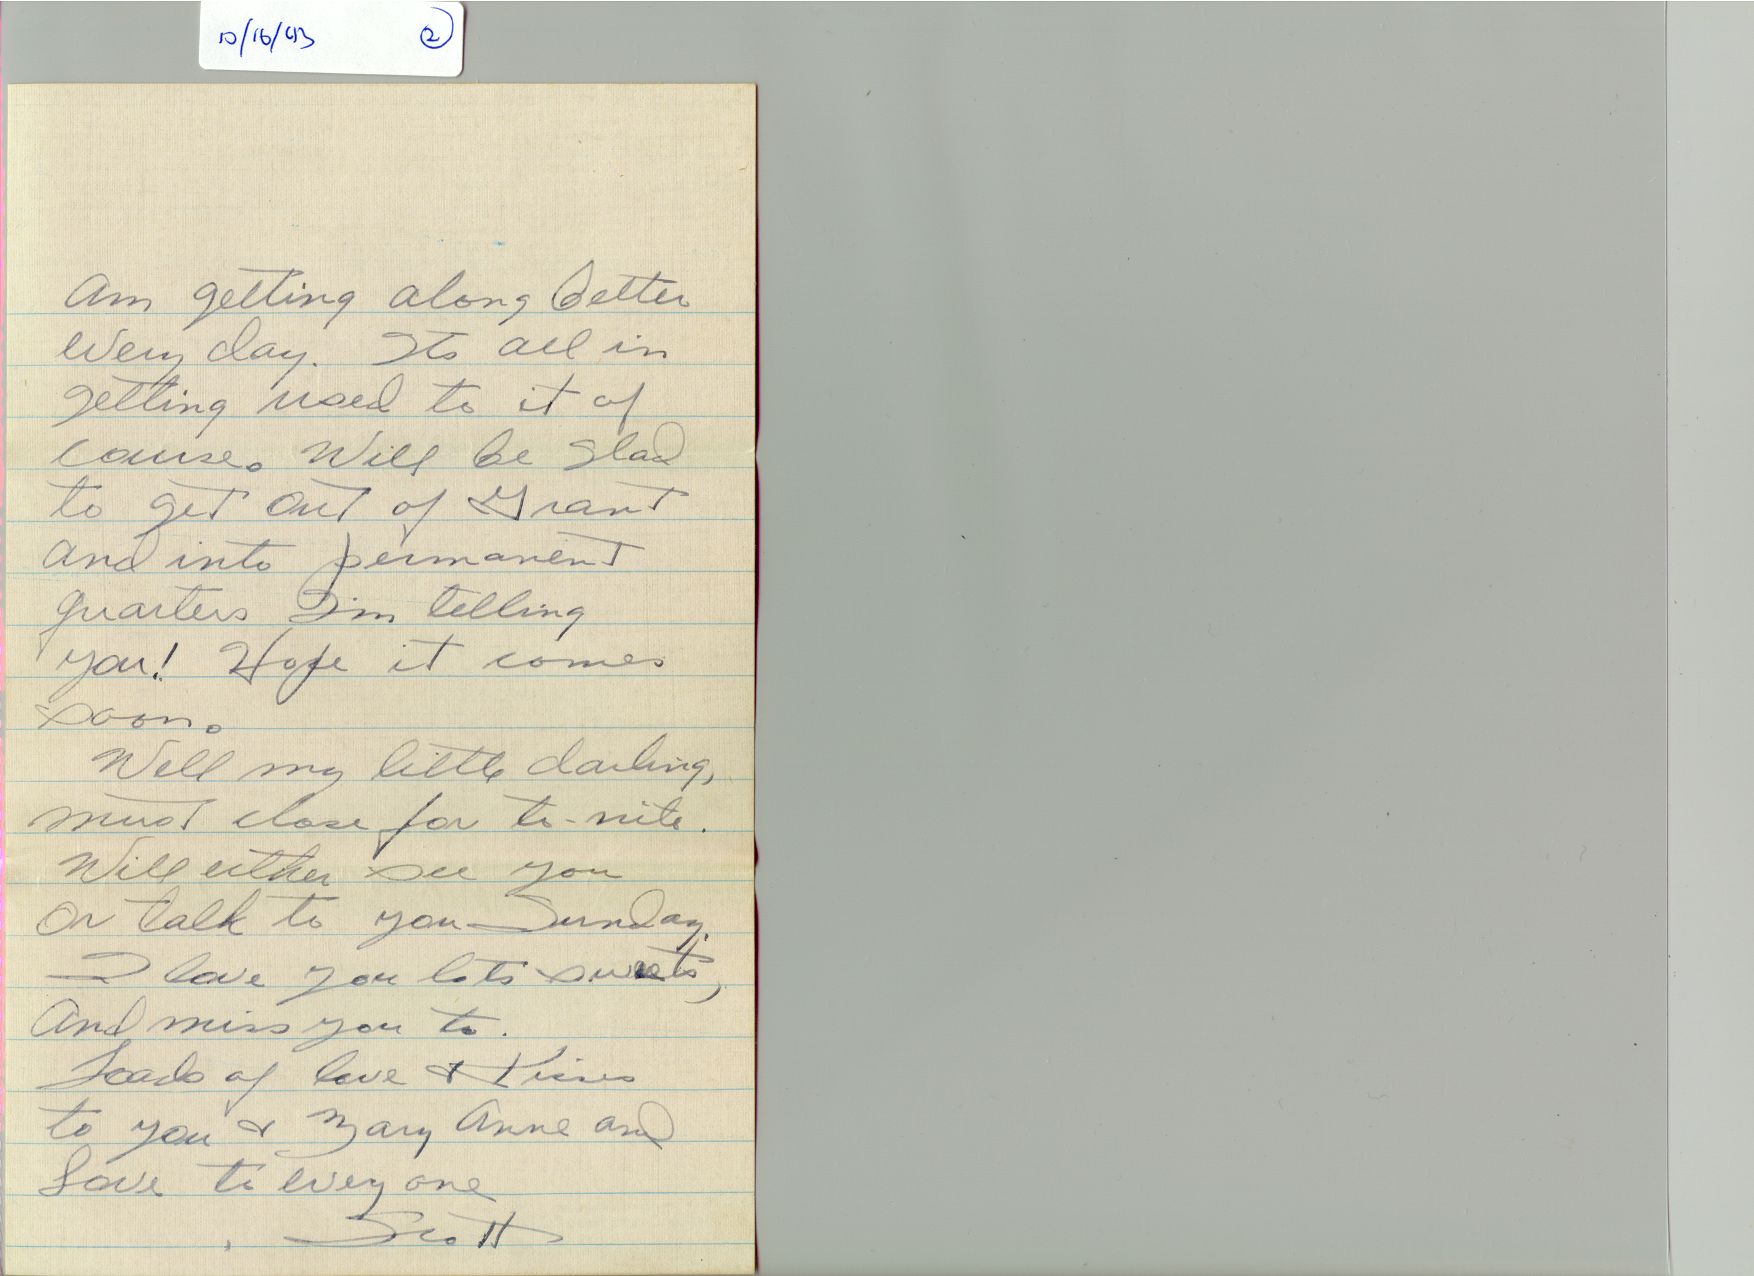 10/16/43 2
Am getting along better
every day. Its all in
getting used to it of
course. Will be glad
to get out of Grant
and into permanent
quarters I'm telling
you! Hope it comes
soon.
Well my little darling,
must close for to-nite.
Will either see you
or talk to you Sunday.
I love you lots sweets,
And miss you to.
Loads of love & Kisses
to you & Mary Anne and
Love to everyone
Scott